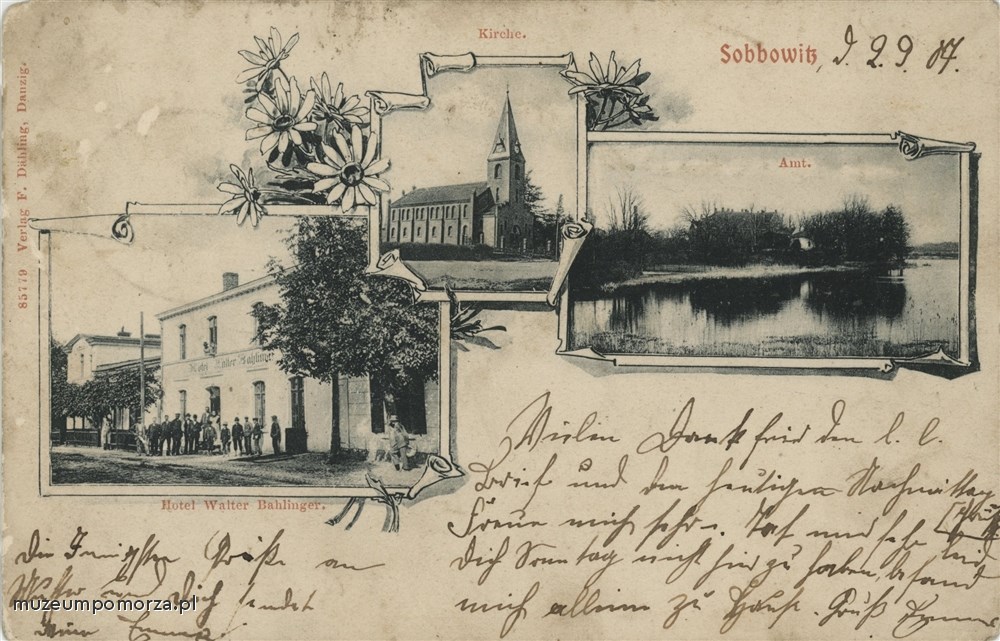 Kirche.
Sobbowitz, d. 2 9 07.
Amt.
85779 Verlag F. Dähling, Danzig.
Hotel Walter Bahlinger
Hotel Walter Bahlinger.
Vielen Dank für den l. l.
Brief und den heutigen Nachmittag
Freue mich sehr. Tat mir sehr leid
Dich Sonntag nicht hier zu haben, befand
mich allein zu Haus. Gruß
Die Innigsten Grüße an
und Dich sendet
muzeumpomorza.pl